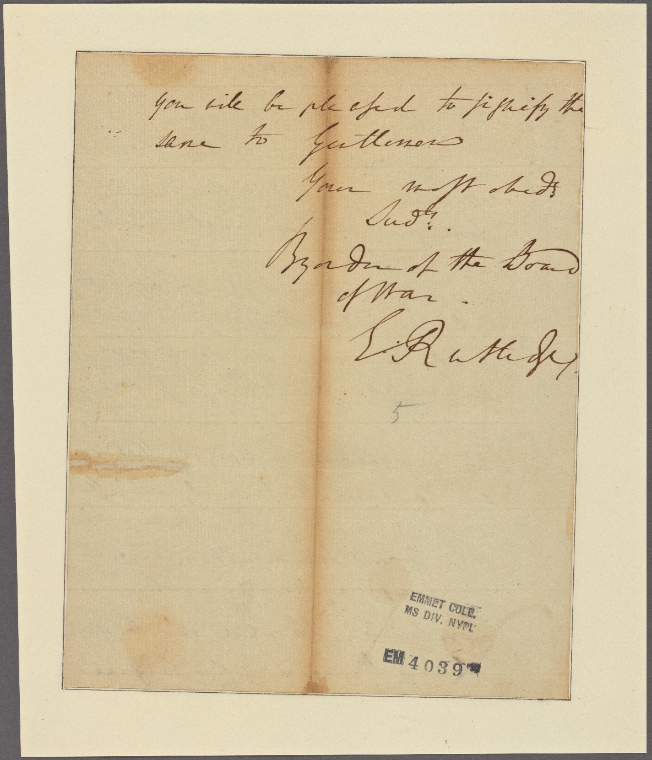 you will be pleased to signify the
same to Gentlemen
Your most obedt
Servt.
By order of the Board
of War.
E. Rutledge
5
EMMET COLL.
MS DIV. NYPL
EM 4039